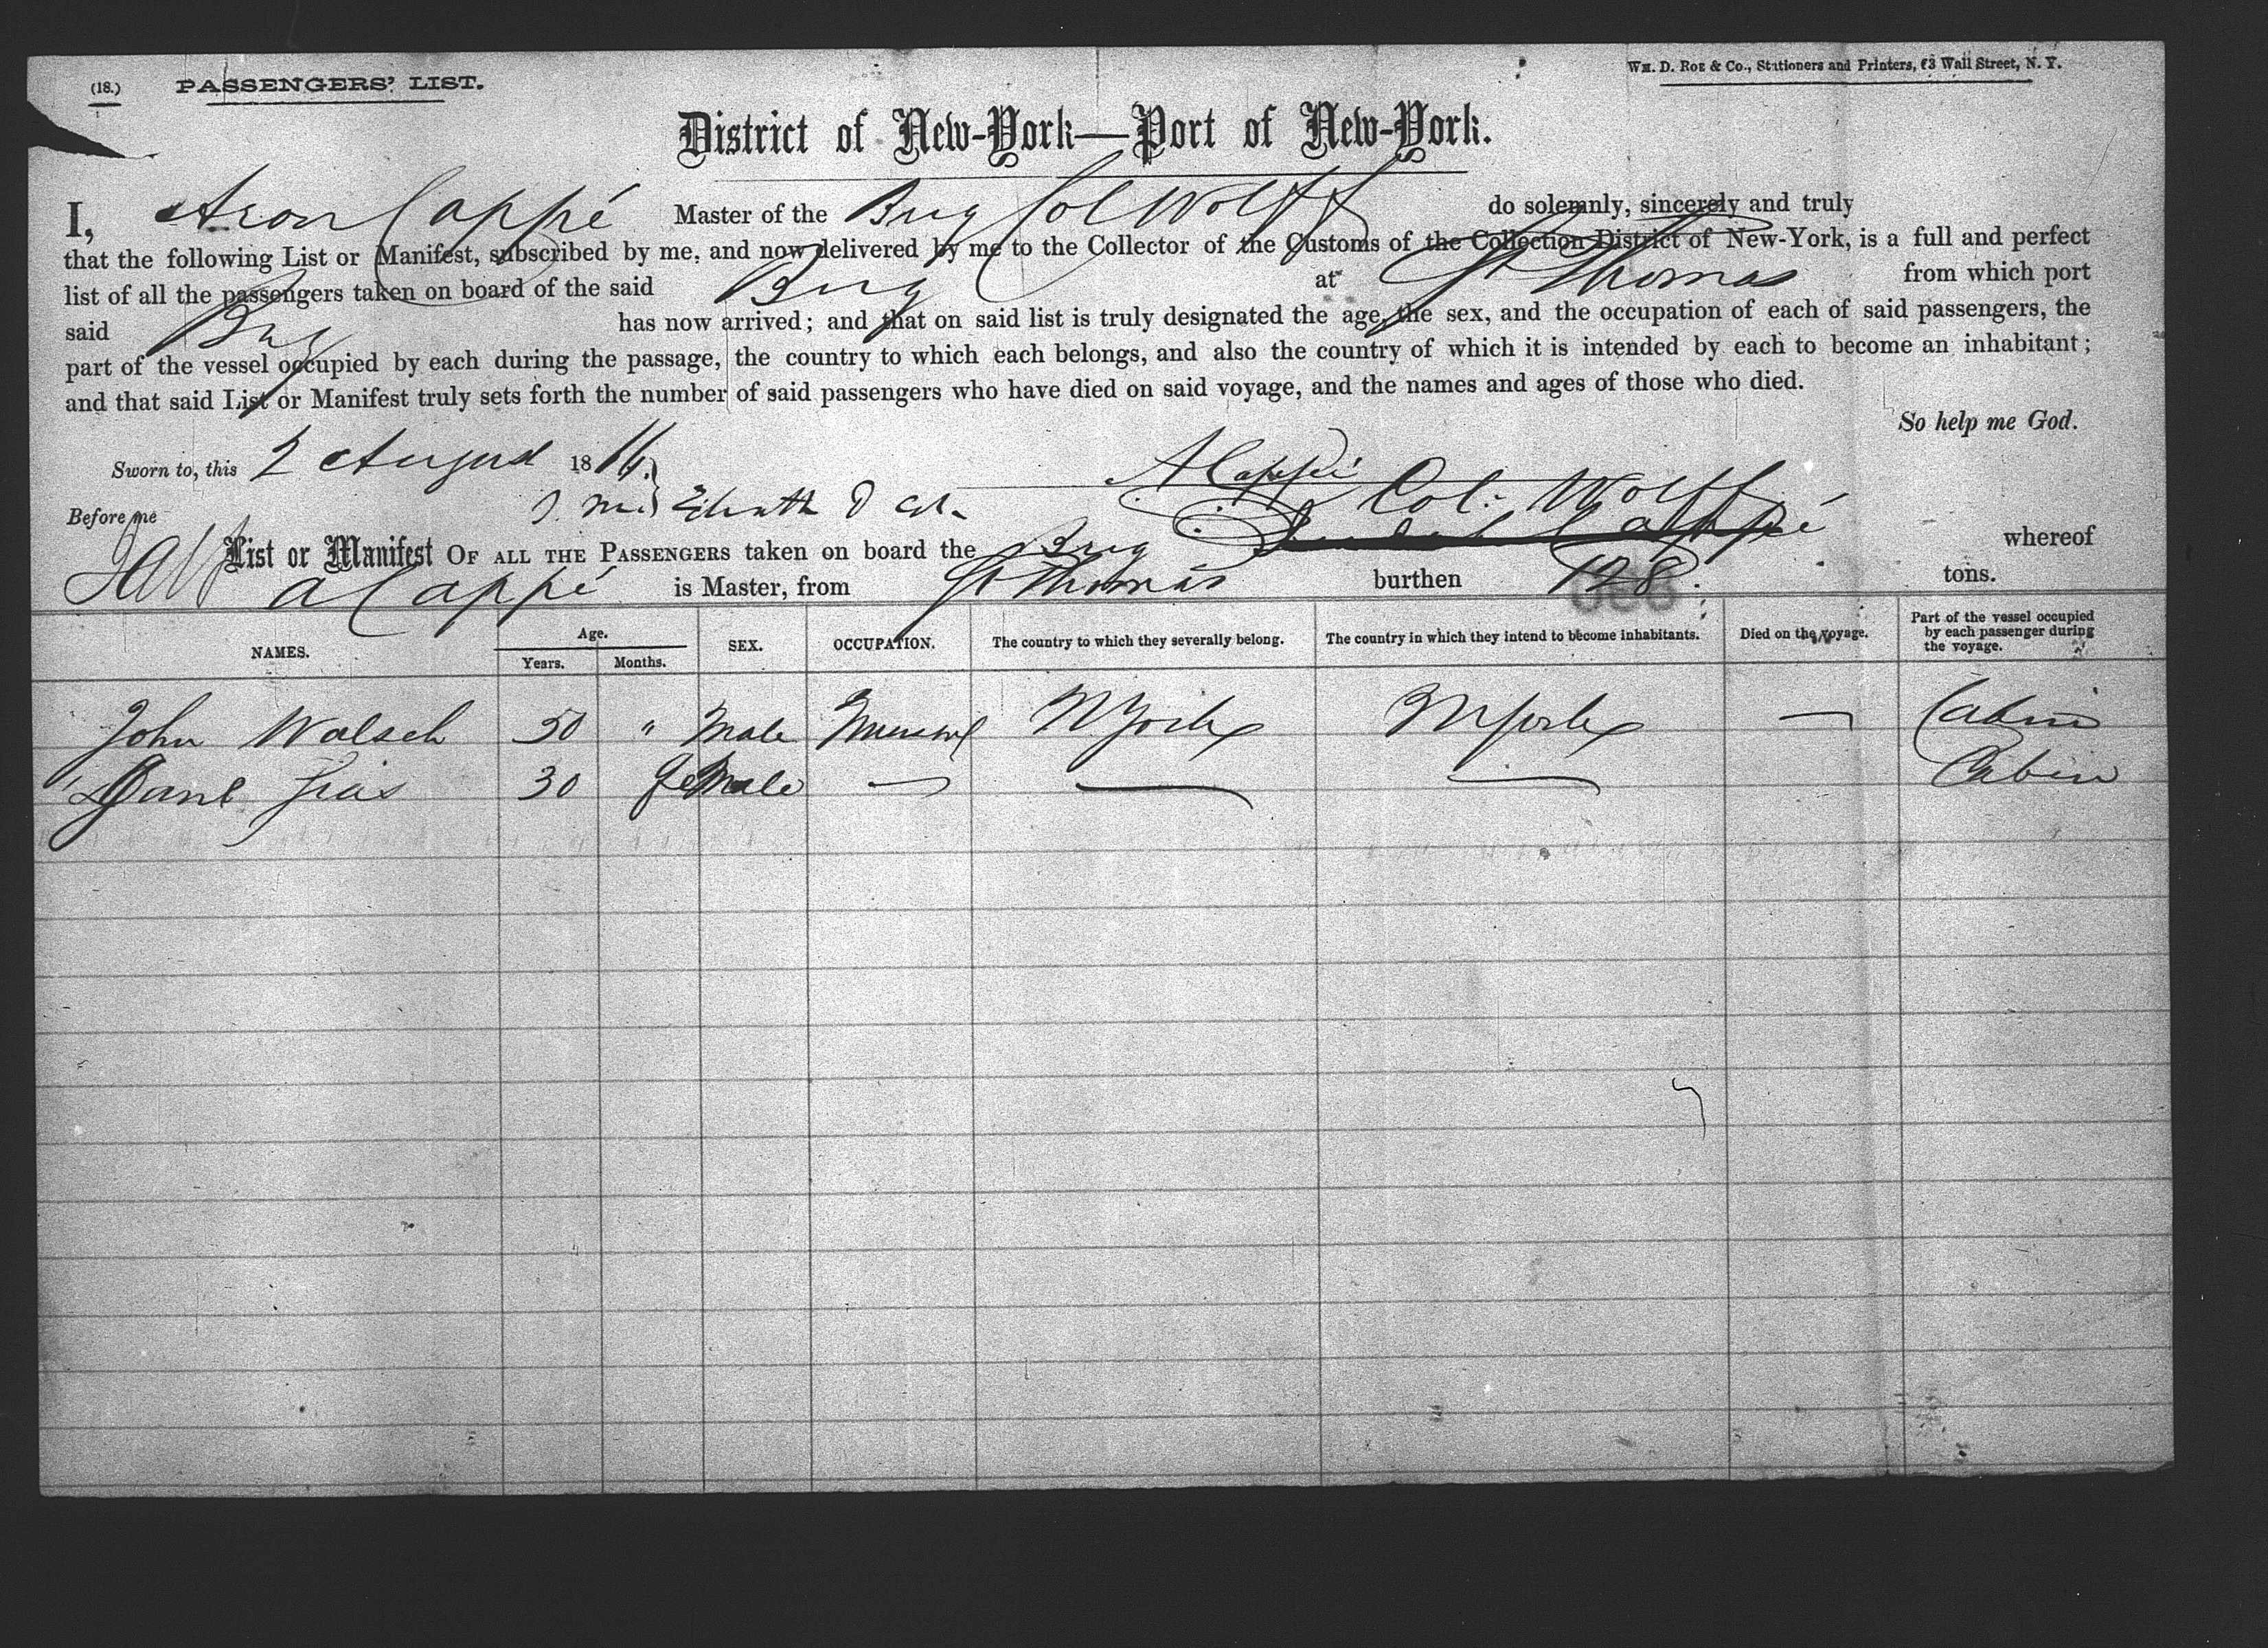 (18.) PASSENGERS' LIST. WM. D. ROE & Co., Stationers and Printers, 63 Wall Street, N. Y.
District of New-York—Port of New-York.
I, Aron Cappé Master of the Brig Col Wolff do solemnly, sincerely and truly
that the following List or Manifest, subscribed by me, and now delivered by me to the Collector of the Customs of the Collection District of New-York, is a full and perfect
list of all the passengers taken on board of the said Brig at St Thomas from which port
said Brig has now arrived; and that on said list is truly designated the age, the sex, and the occupation of each of said passengers, the
part of the vessel occupied by each during the passage, the country to which each belongs, and also the country of which it is intended by each to become an inhabitant;
and that said List or Manifest truly sets forth the number of said passengers who have died on said voyage, and the names and ages of those who died.
So help me God.
Sworn to, this 2 August 18 A Cappé
Before me Col: Wolff
List or Manifest OF ALL THE PASSENGERS taken on board the Brig whereof
A Cappé is Master, from St Thomas burthen 128 tons.
NAMES. Age. Years. Months. SEX. OCCUPATION. The country to which they severally belong. The country in which they intend to become inhabitants. Died on the voyage. Part of the vessel occupied by each passenger during the voyage.
John Walsch 50 " Male N York N York — Cabin
Jane 30 female — — — Cabin